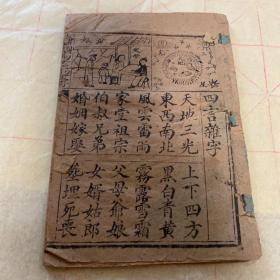 四言雜字
天地三光 上下四方
東西南北 黑白青黃
風雲雷雨 霧露雪霜
家堂祖宗 父母爺娘
伯叔兄弟 女婿姑郎
婚姻嫁娶 塟埋死喪